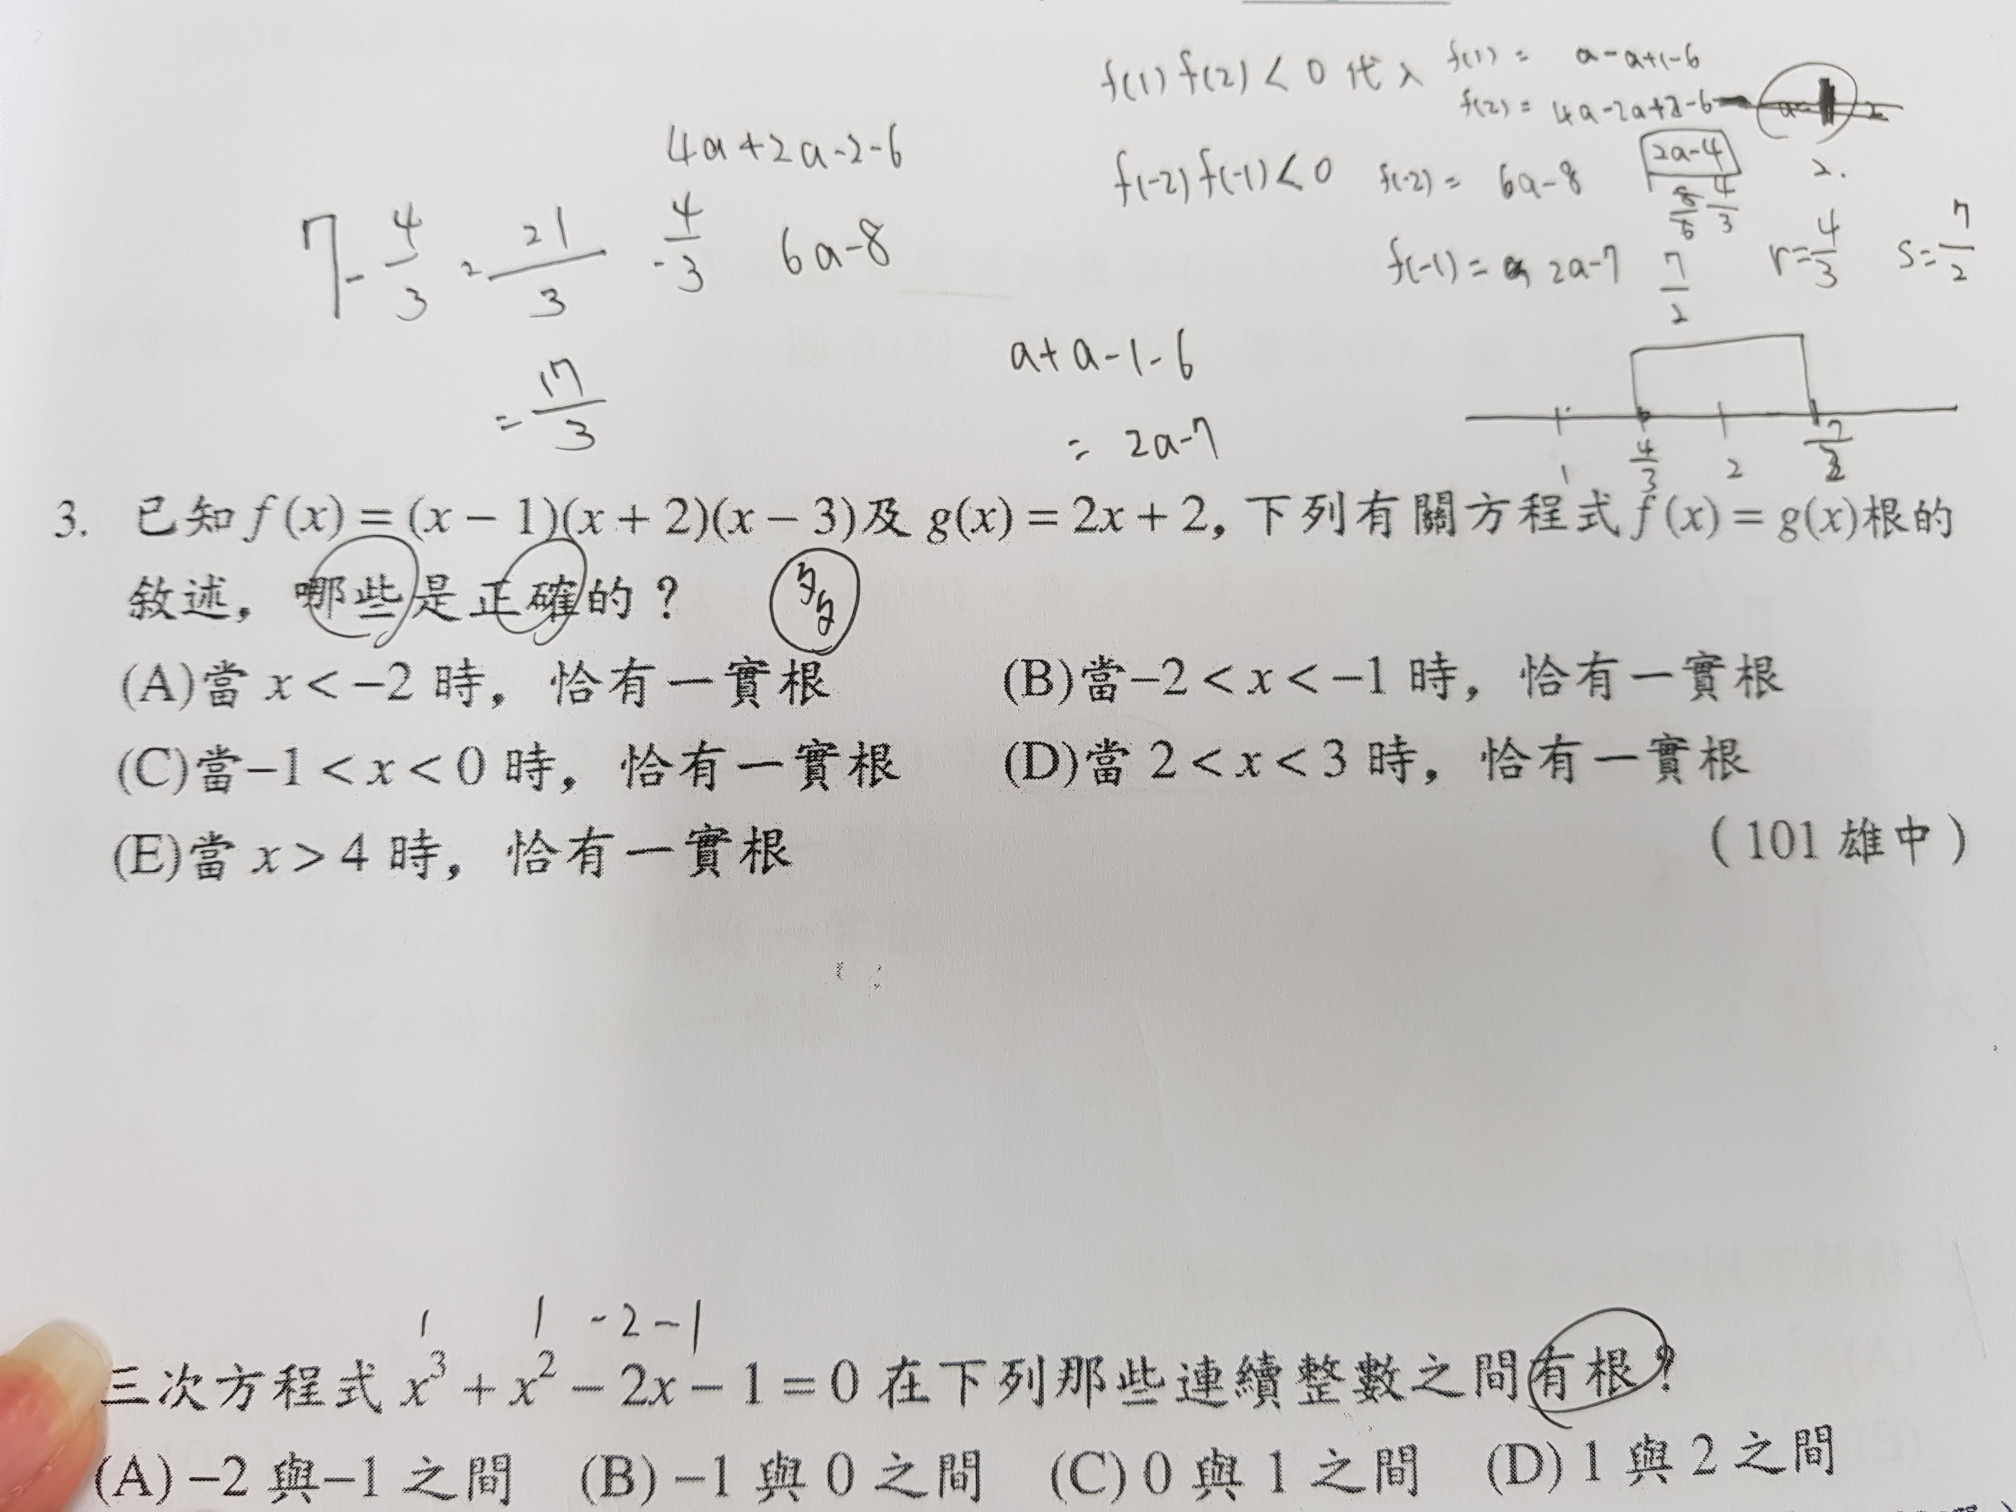 f(1) f(2) < 0 代入 f(1) = a-a+1-6
f(2) = 4a-2a+2-6
4a+2a-2-6
f(-2) f(-1) < 0 f(-2) = 6a-8 2a-4 2.
8/6 4/3
7 - 4/3 = 21/3 - 4/3 6a-8
f(-1) = 2a-7 7/2 r=4/3 s=7/2
= 17/3
a+a-1-6
= 2a-7
1 4/3 2 7/2
3. 已知 f(x) = (x − 1)(x + 2)(x − 3)及 g(x) = 2x + 2, 下列有關方程式 f(x) = g(x)根的
敘述, 哪些是正確的? 多
(A)當 x < −2 時, 恰有一實根 (B)當−2 < x < −1 時, 恰有一實根
(C)當−1 < x < 0 時, 恰有一實根 (D)當 2 < x < 3 時, 恰有一實根
(E)當 x > 4 時, 恰有一實根 (101 雄中)
1 1 -2 -1
三次方程式 x³ + x² − 2x − 1 = 0 在下列那些連續整數之間有根?
(A) −2 與−1 之間 (B) −1 與 0 之間 (C) 0 與 1 之間 (D) 1 與 2 之間